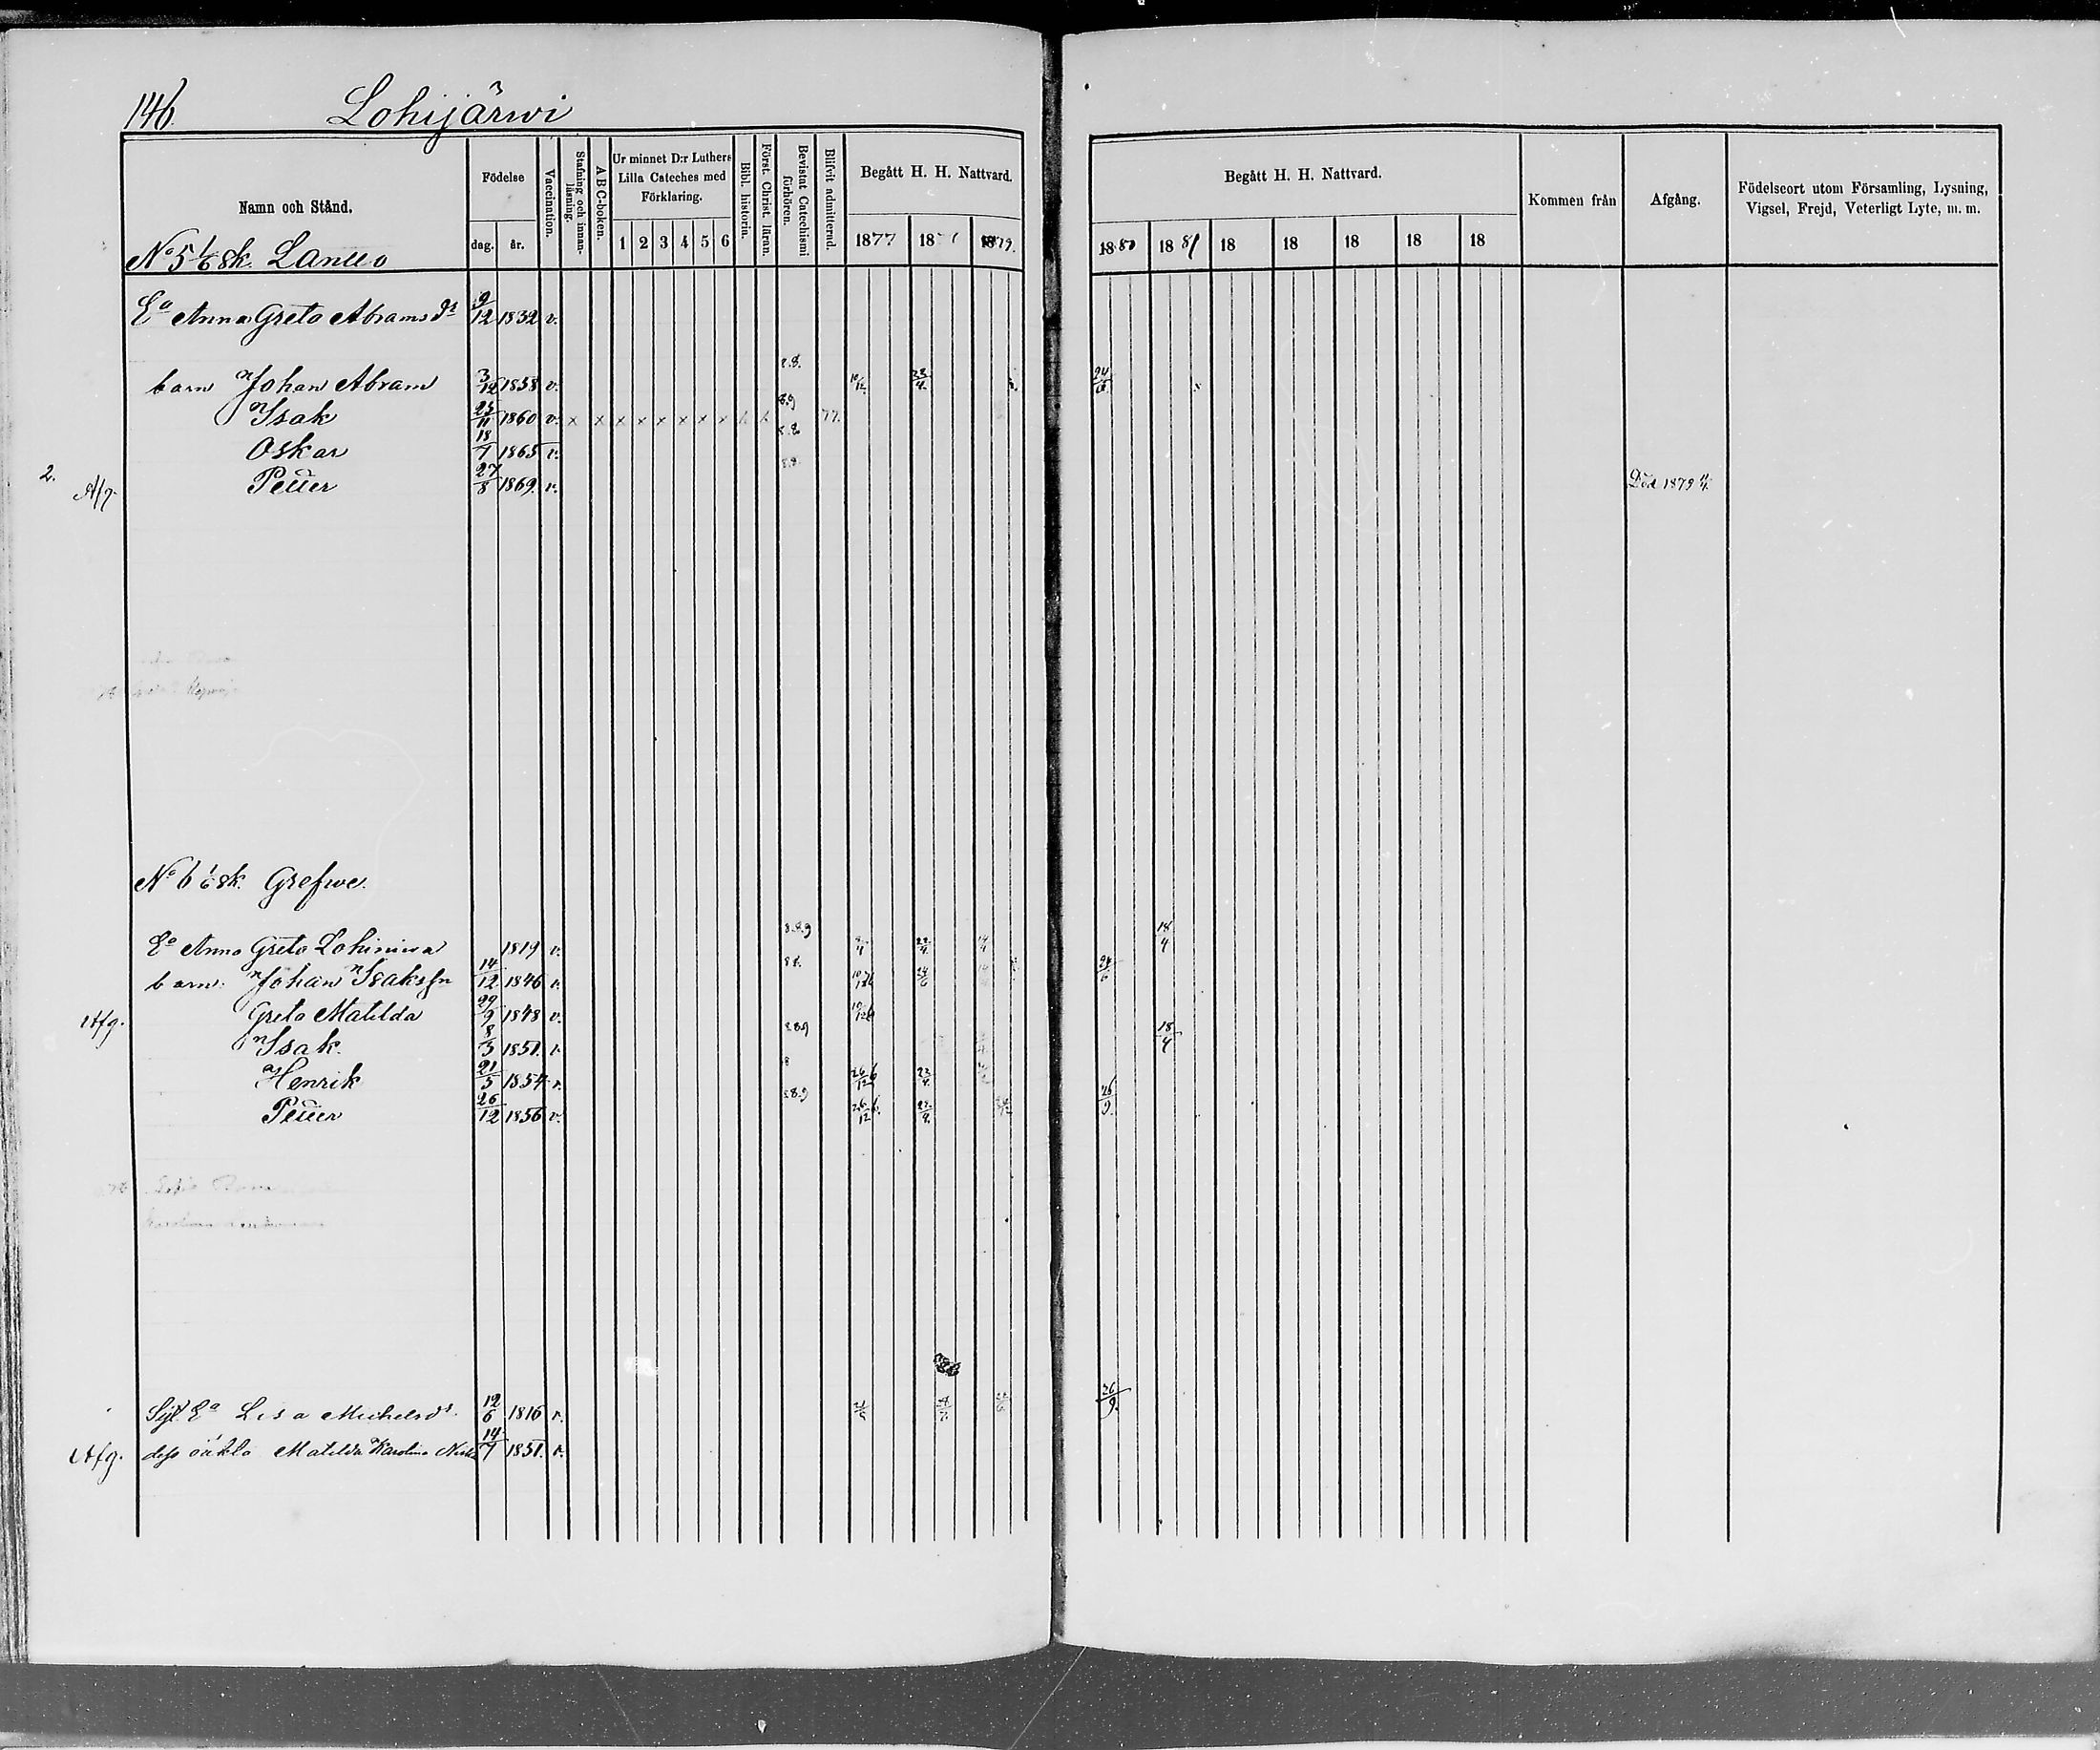 146. Lohijärwi
Namn och Stånd.
Födelse
dag. år.
Vaccination.
Stafning och innan-läsning.
A B C-boken.
Ur minnet D:r Luthers Lilla Cateches med Förklaring.
1 2 3 4 5 6
Bibl. historia.
Först. Christ. läran.
Bevistat Catechismi förhören.
Blifvit admitterad.
Begått H. H. Nattvard.
1877 18 1879.
Begått H. H. Nattvard.
1880 1881 18 18 18 18 18
Kommen från
Afgång.
Födelseort utom Församling, Lysning, Vigsel, Frejd, Veterligt Lyte, m. m.
No 5 1/6 sk.
Ea Anna Greta Abramsdr 9/12 1832 v.
barn Johan Abram 3/12 1858 v. 8.8. 10/12 23/4 24/6
Isak 25/11 1860 v. x x x x x x x x 8.9 77.
Oskar 18/7 1865 v. 8.8
2. Afg. Petter 27/8 1869. v. 8.8. Död 1879
No 6 1/6 sk. Grefwe.
Ea Anna Greta Lohiniwa 1819 v. 8.8.9 22/4 18/4
barn Johan Isaksson 14/12 1846 v. 8 8. 10/12 6 24/6 24/6
Afg. Greta Matilda 29/9 1848 v. 10/12 6
Isak. 8/3 1851. v. 8.8.9 18/4
Henrik 21/5 1854 v. 8 26/12 6 22/4.
Petter 26/12 1856 v. 8.8.9 26/12 6. 22/4. 26/9.
Syt. Ea Lisa Michelsdr. 12/6 1816 v. 26/9.
Afg. dess Matilda Karolina 14/7 1851. v.